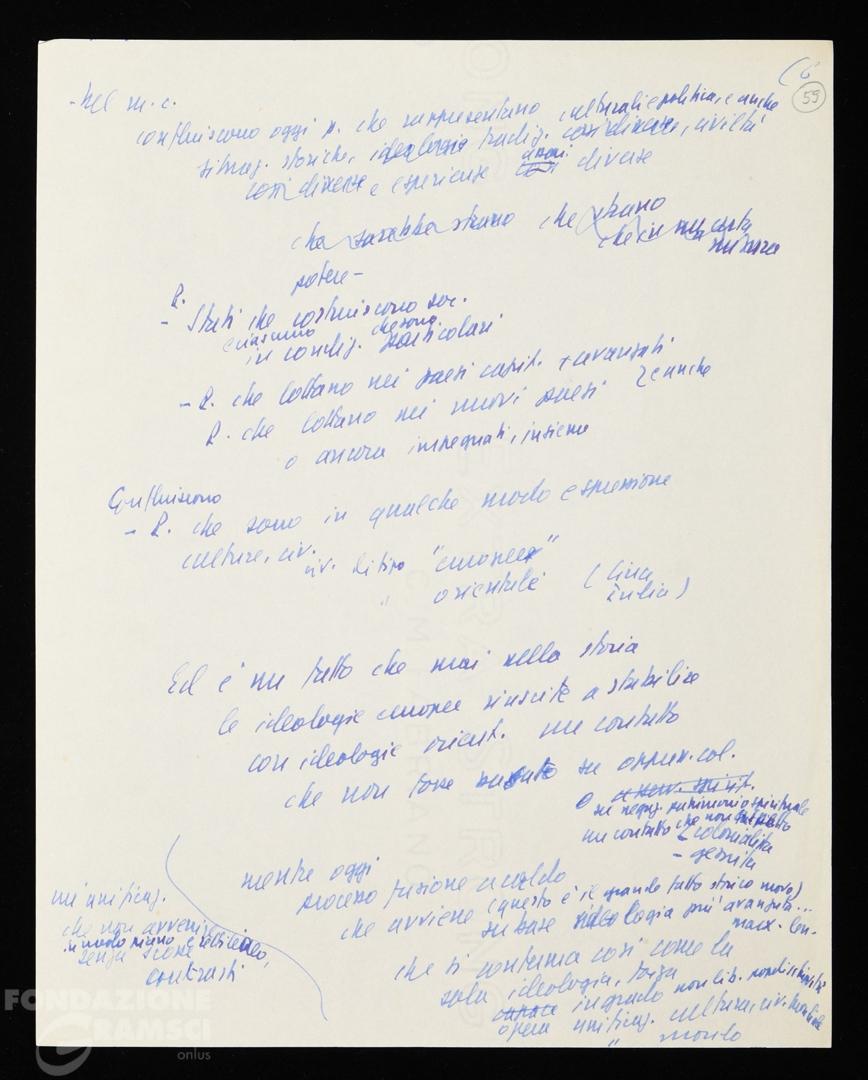 (6
59
- Nel m. c.
confluiscono oggi p. che rappresentano culturali e politica, e anche
situaz. storiche, ideologie tradiz. così diverse, civiltà
così diverse e esperienze diverse
che sarebbe strano che strano
che in una certa
misura
potere -
P.
- Stati che costruiscono soc.
ciascuno che sono
in condiz. particolari
- P. che lottano nei paesi capit. + avanzati
P. che lottano nei nuovi paesi e anche
o ancora impegnati, insieme
Confluiscono
- P. che sono in qualche modo espressione
culture, civ.
civ. di tipo "europeo"
" orientale (Cina
India)
Ed è un fatto che mai nella storia
le ideologie europee riuscite a stabilire
con ideologie orient. un contatto
che non fosse su oppress. col.
o
su negaz. patrimonio spirituale
un contatto che non
colonialista
- gesuita
mentre oggi
processo fusione a caldo
che avviene (questo è il grande fatto storico nuovo)
su base ideologia più avanzata...
marx. len.
un'unificaz.
che non avviene
in modo piano e idilliaco,
senza scosse
contrasti
che si conferma così come la
sola ideologia, forza
capace in grado
opera unificaz. cultura, civ. mondiale
" mondo
FONDAZIONE
GRAMSCI
onlus